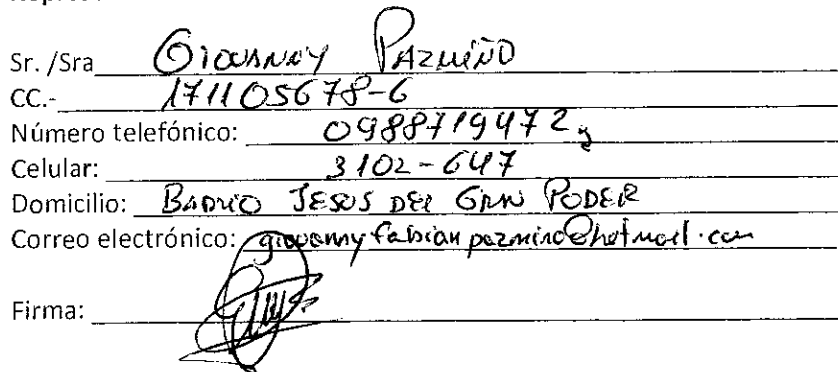 Sr. /Sra GIOVANNY PAZMIÑO
CC.- 171105678-6
Número telefónico: 0988719472,
Celular: 3102-647
Domicilio: BARRIO JESUS DEL GRAN PODER
Correo electrónico: giovannyfabianpazmino@hotmail.com
Firma: